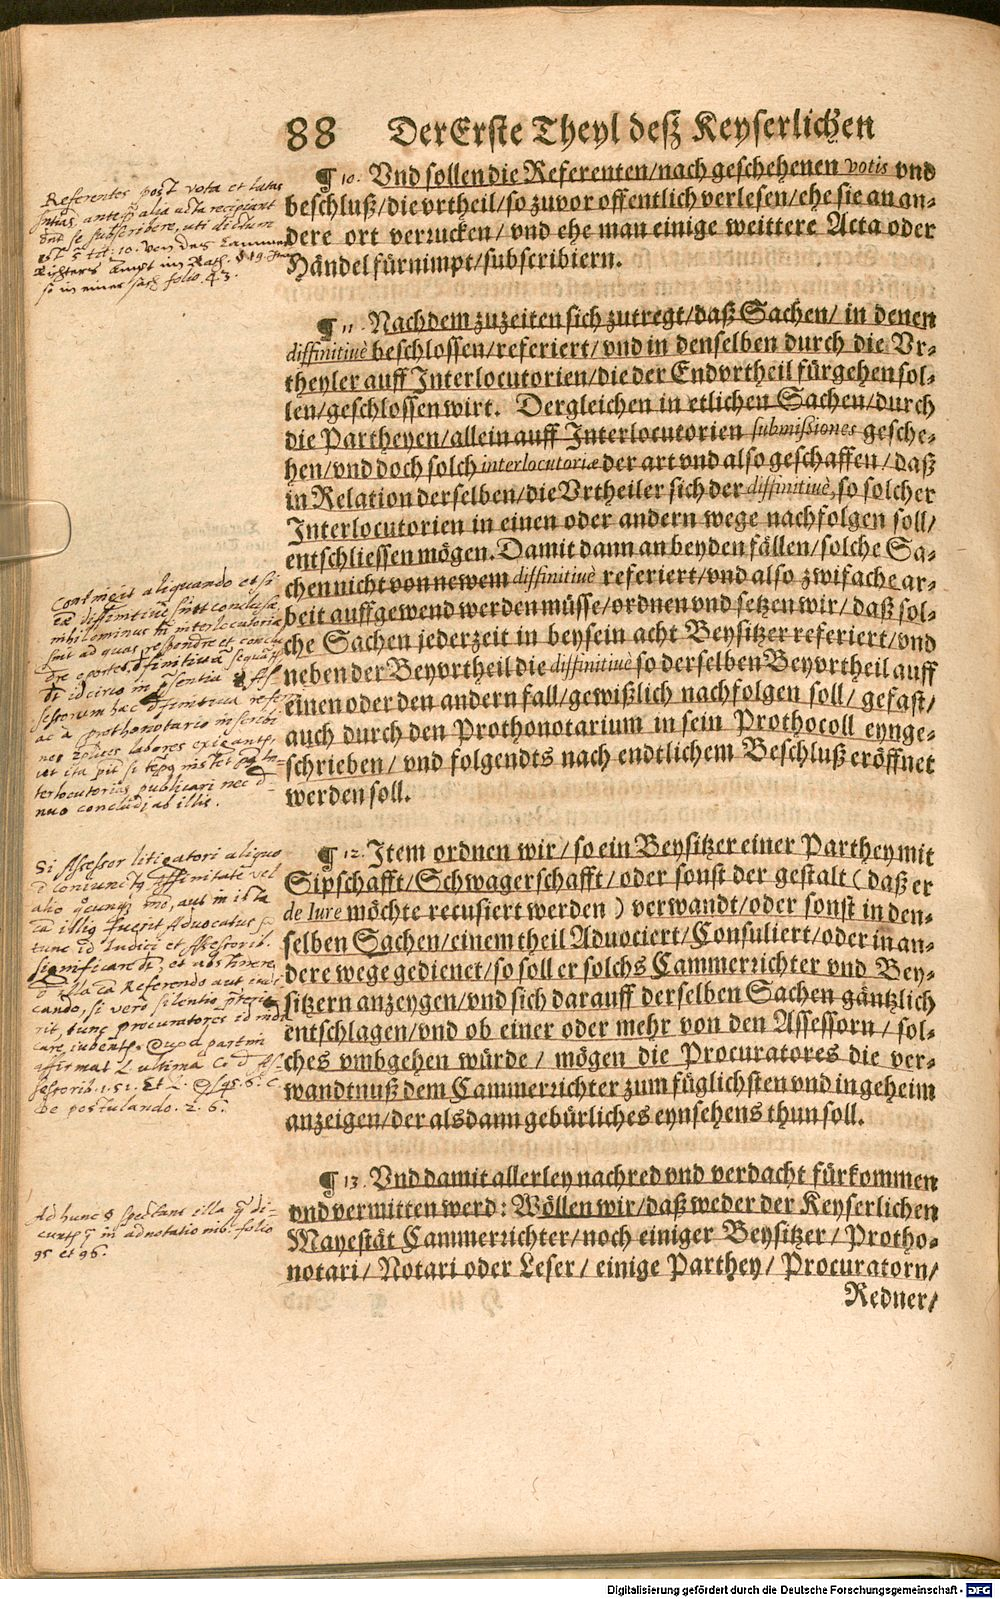 88 Der Erste Theyl desz Keyserlichen
¶ 10. Vnd sollen die Referenten/nach geschehenen votis vnd
beschluß/die vrtheil/so zuvor offentlich verlesen/ehe sie an an-
dere ort verzucken/ vnd ehe man einige weittere Acta oder
Händel fürnimpt/subscribiern.
Referentes post vota et latas
antequam alia acta recipiant
se subscribere, uti dictum
tit. 10. Von des Cammer
Richters Ampt im Rath. § 19.
so in einer sach folio. 43.
¶ 11. Nach dem zuzeiten sich zutregt/daß Sachen/ in denen
diffinitiuè beschlossen/referiert/ vnd in denselben durch die Vr-
theyler auff Interlocutorien/die der Endvrtheil fürgehen sol-
len/geschlossen wirt. Dergleichen in etlichen Sachen/durch
die Partheyen/allein auff Interlocutorien submißiones gesche-
hen/vnd doch solch interlocutoriæ der art vnd also geschaffen/ daß
in Relation derselben/die Vrtheiler sich der diffinitiuè, so solcher
Interlocutorien in einen oder andern wege nachfolgen soll/
entschliessen mögen. Damit dann an beyden fällen/solche Sa-
chen nicht von newem diffinitiuè referiert/vnd also zwifache ar-
beit auffgewend werden müsse/ordnen vnd setzen wir/ daß sol-
che Sachen jederzeit in beysein acht Beysitzer referiert/vnd
neben der Beyvrtheil die diffinitiuè so derselben Beyvrtheil auff
einen oder den andern fall/gewißlich nachfolgen soll/ gefast/
auch durch den Prothonotarium in sein Prothocoll eynge-
schrieben/ vnd folgendts nach endtlichem Beschluß eröffnet
werden soll.
Contingit aliquando et si
diffinitive sint conclusae
nihilominus in interlocutoria
sint ad quas respondere et
oportet, diffinitiva
idcirco in
sessorum haec diffinitiva
ac a prothonotario inscribi
nec duplices labores exigantur,
vel ita
terlocutorias publicari nec de-
nuo concludi ab illis.
¶ 12. Item ordnen wir/ so ein Beysitzer einer Parthey mit
Sipschafft/Schwagerschafft/ oder sonst der gestalt ( daß er
de Iure möchte recusiert werden ) verwandt/oder sonst in den-
selben Sachen/einem theil Aduociert/Consuliert/oder in an-
dere wege gedienet/so soll er solchs Cammerrichter vnd Bey-
sitzern anzeygen/vnd sich darauff derselben Sachen gäntzlich
entschlagen/vnd ob einer oder mehr von den Assessorn/ sol-
ches vmbgehen würde/ mögen die Procuratores die ver-
wandtnuß dem Cammerrichter zum füglichsten vnd in geheim
anzeigen/der alsdann gebürliches eynsehens thun soll.
Si Assessor litigatori aliquo
affinitate vel
alio modo, aut in ista
ca illis fuerit Advocatus
tunc id Iudici et Assessorib.
significandum, et abstinere
illa ca Referendo aut
cando, si vero silentio
rit, tunc procuratores id indi
care iubentur. Quod partim
affirmat L. ultima C. d As-
sessorib. 1. 51. Et L.
de postulando. 2. 6.
¶ 13. Vnd damit allerley nachred vnd verdacht fürkommen
vnd vermitten werd: Wöllen wir/daß weder der Keyserlichen
Mayestät Cammerrichter/noch einiger Beysitzer/ Protho-
notari/ Notari oder Leser/ einige Parthey/ Procuratorn/
Redner/
Ad hunc § spectant illa quae di-
cuntur in adnotatio nib. folio
95 et 96.
Digitalisierung gefördert durch die Deutsche Forschungsgemeinschaft - DFG